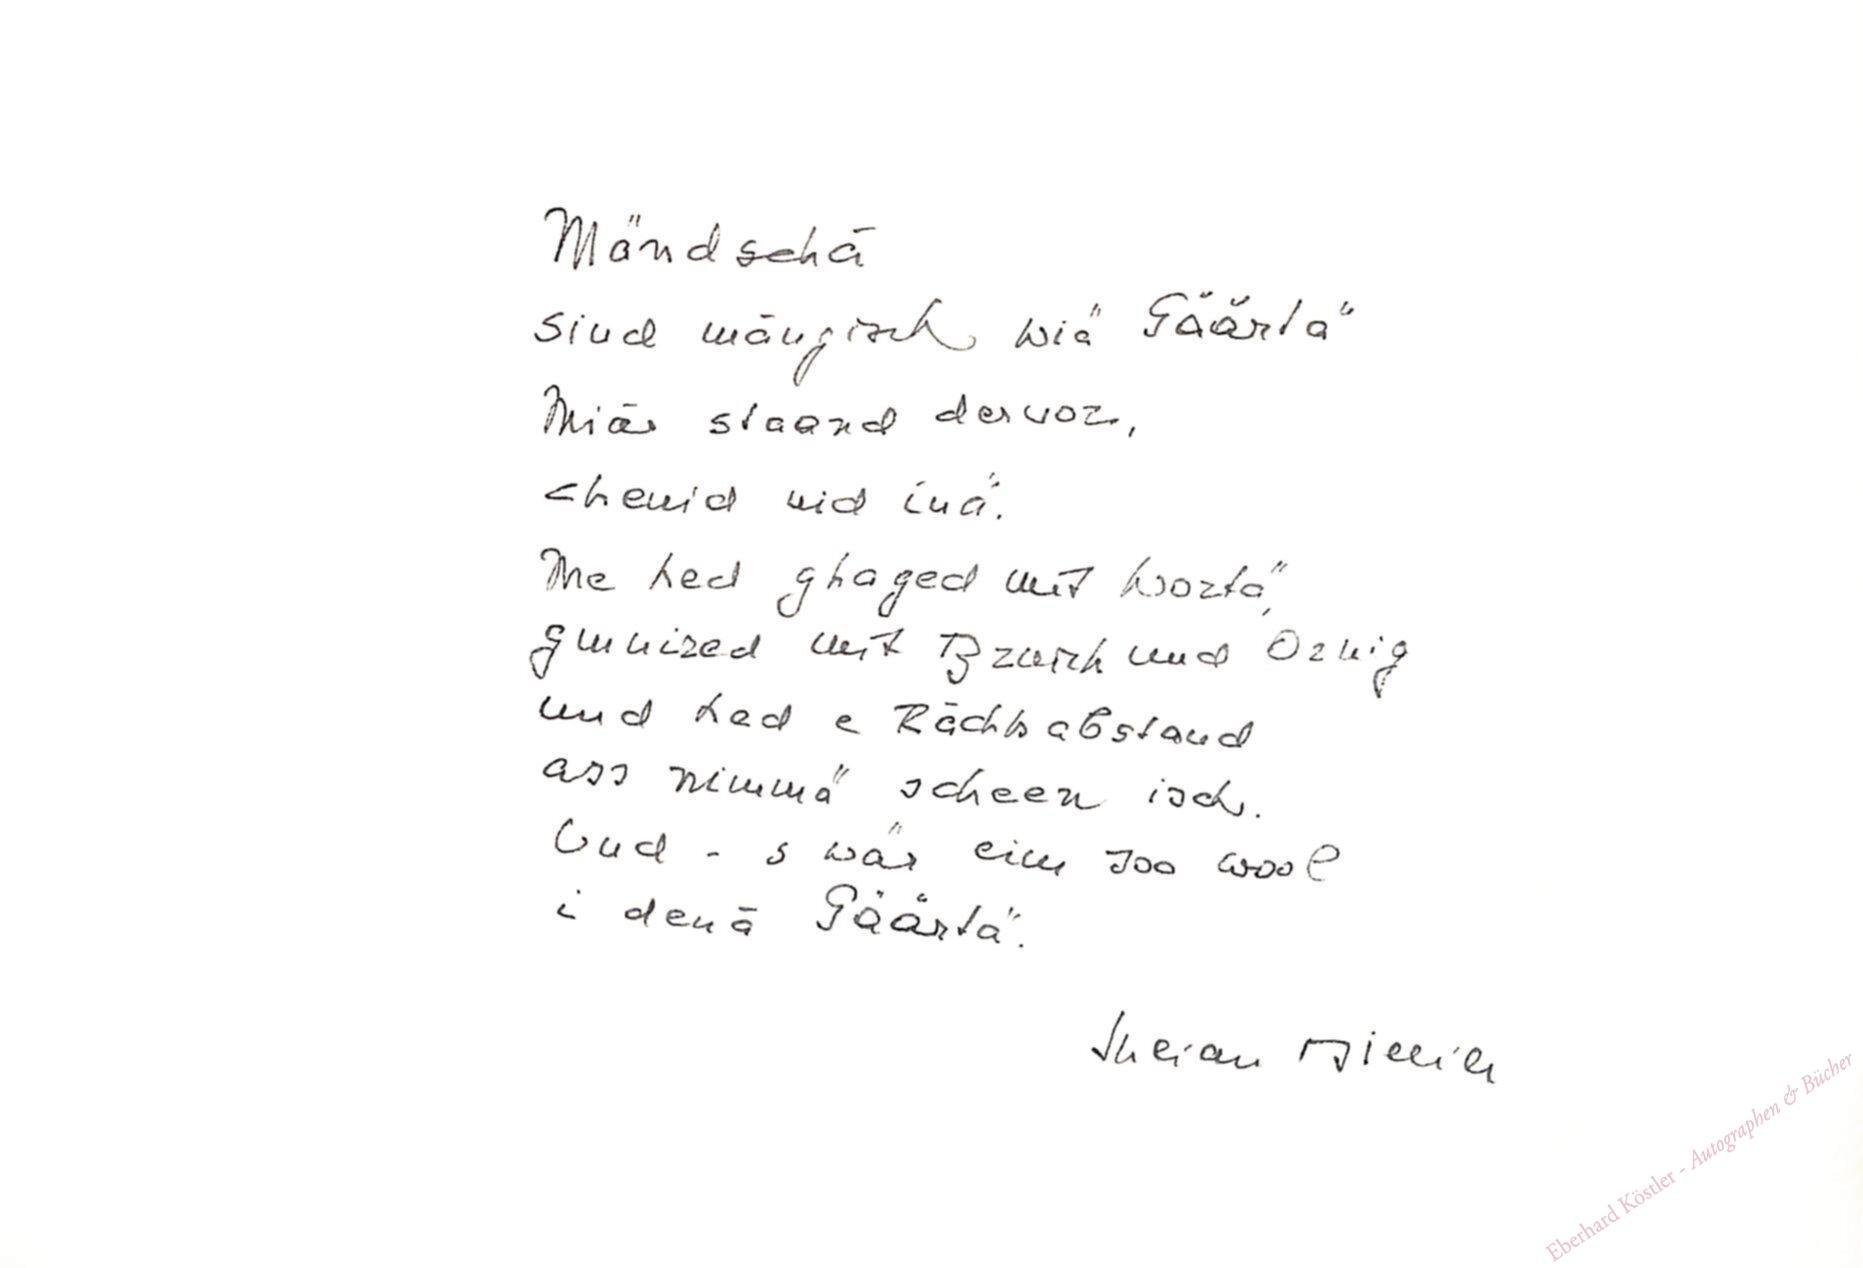 Mändschä
sind mängisch wiä Gäärtä
Miär staand dervor,
chenid nid inä.
Me hed ghaged mit Wortä,
gmuired mit Bruich und Ornig
und hed e Rächtsabstand
ass nimmä scheen isch.
Und - s wär eim soo wool
i denä Gäärtä.
Julian Dillier
Eberhard Köstler - Autographen & Bücher